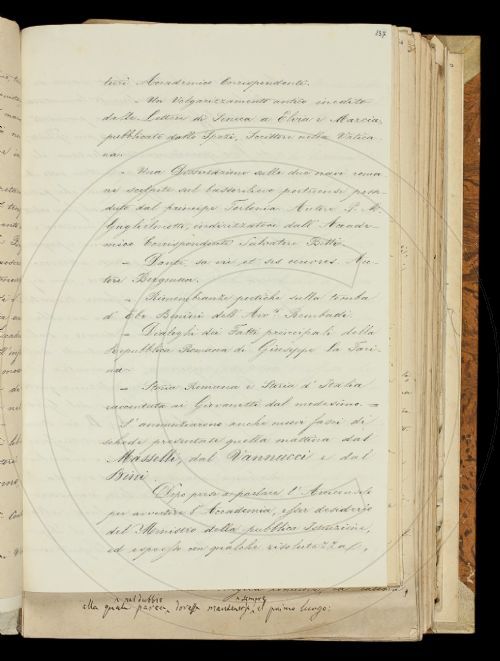 137
turi Accademico Corrispondenti.
- Un Volgarizzamento antico inedito
delle Lettere di Seneca a Elvia e Marcia,
pubblicate dallo Spezi, Scrittore nella Vatica
na.
- Una Dissertazione sulle due navi roma
ne scolpite sul bassorilievo portuense posse
duto dal principe Torlonia Autore P. A.
Guglielmotti, indirizzatoci dall' Accade-
mico Corrispondente Salvatore Betti.
- Dante sa vie et ses œuvres. Au-
tore Bergmann.
- Rimembranze poetiche sulla tomba
di Ebe Benini dell' Avv.o Rembaldi.
- Dialoghi dei Fatti principali della
Repubblica Romana di Giuseppe La Fari
na.
- Storia Romana e Storia d' Italia
raccontata ai Giovanetti dal medesimo. =
S' annunziarono anche nuovi fasci di
schede presentate quella mattina dal
Masselli, dal Vannucci e dal
Bini
Dopo prese a parlare l' Arciconsolo
per avvertire l' Accademia, esser desiderio
del Ministro della pubblica Istruzione,
ed espresso con qualche risolutezza,
alla quale pareva dovesse mantenersi il primo luogo: